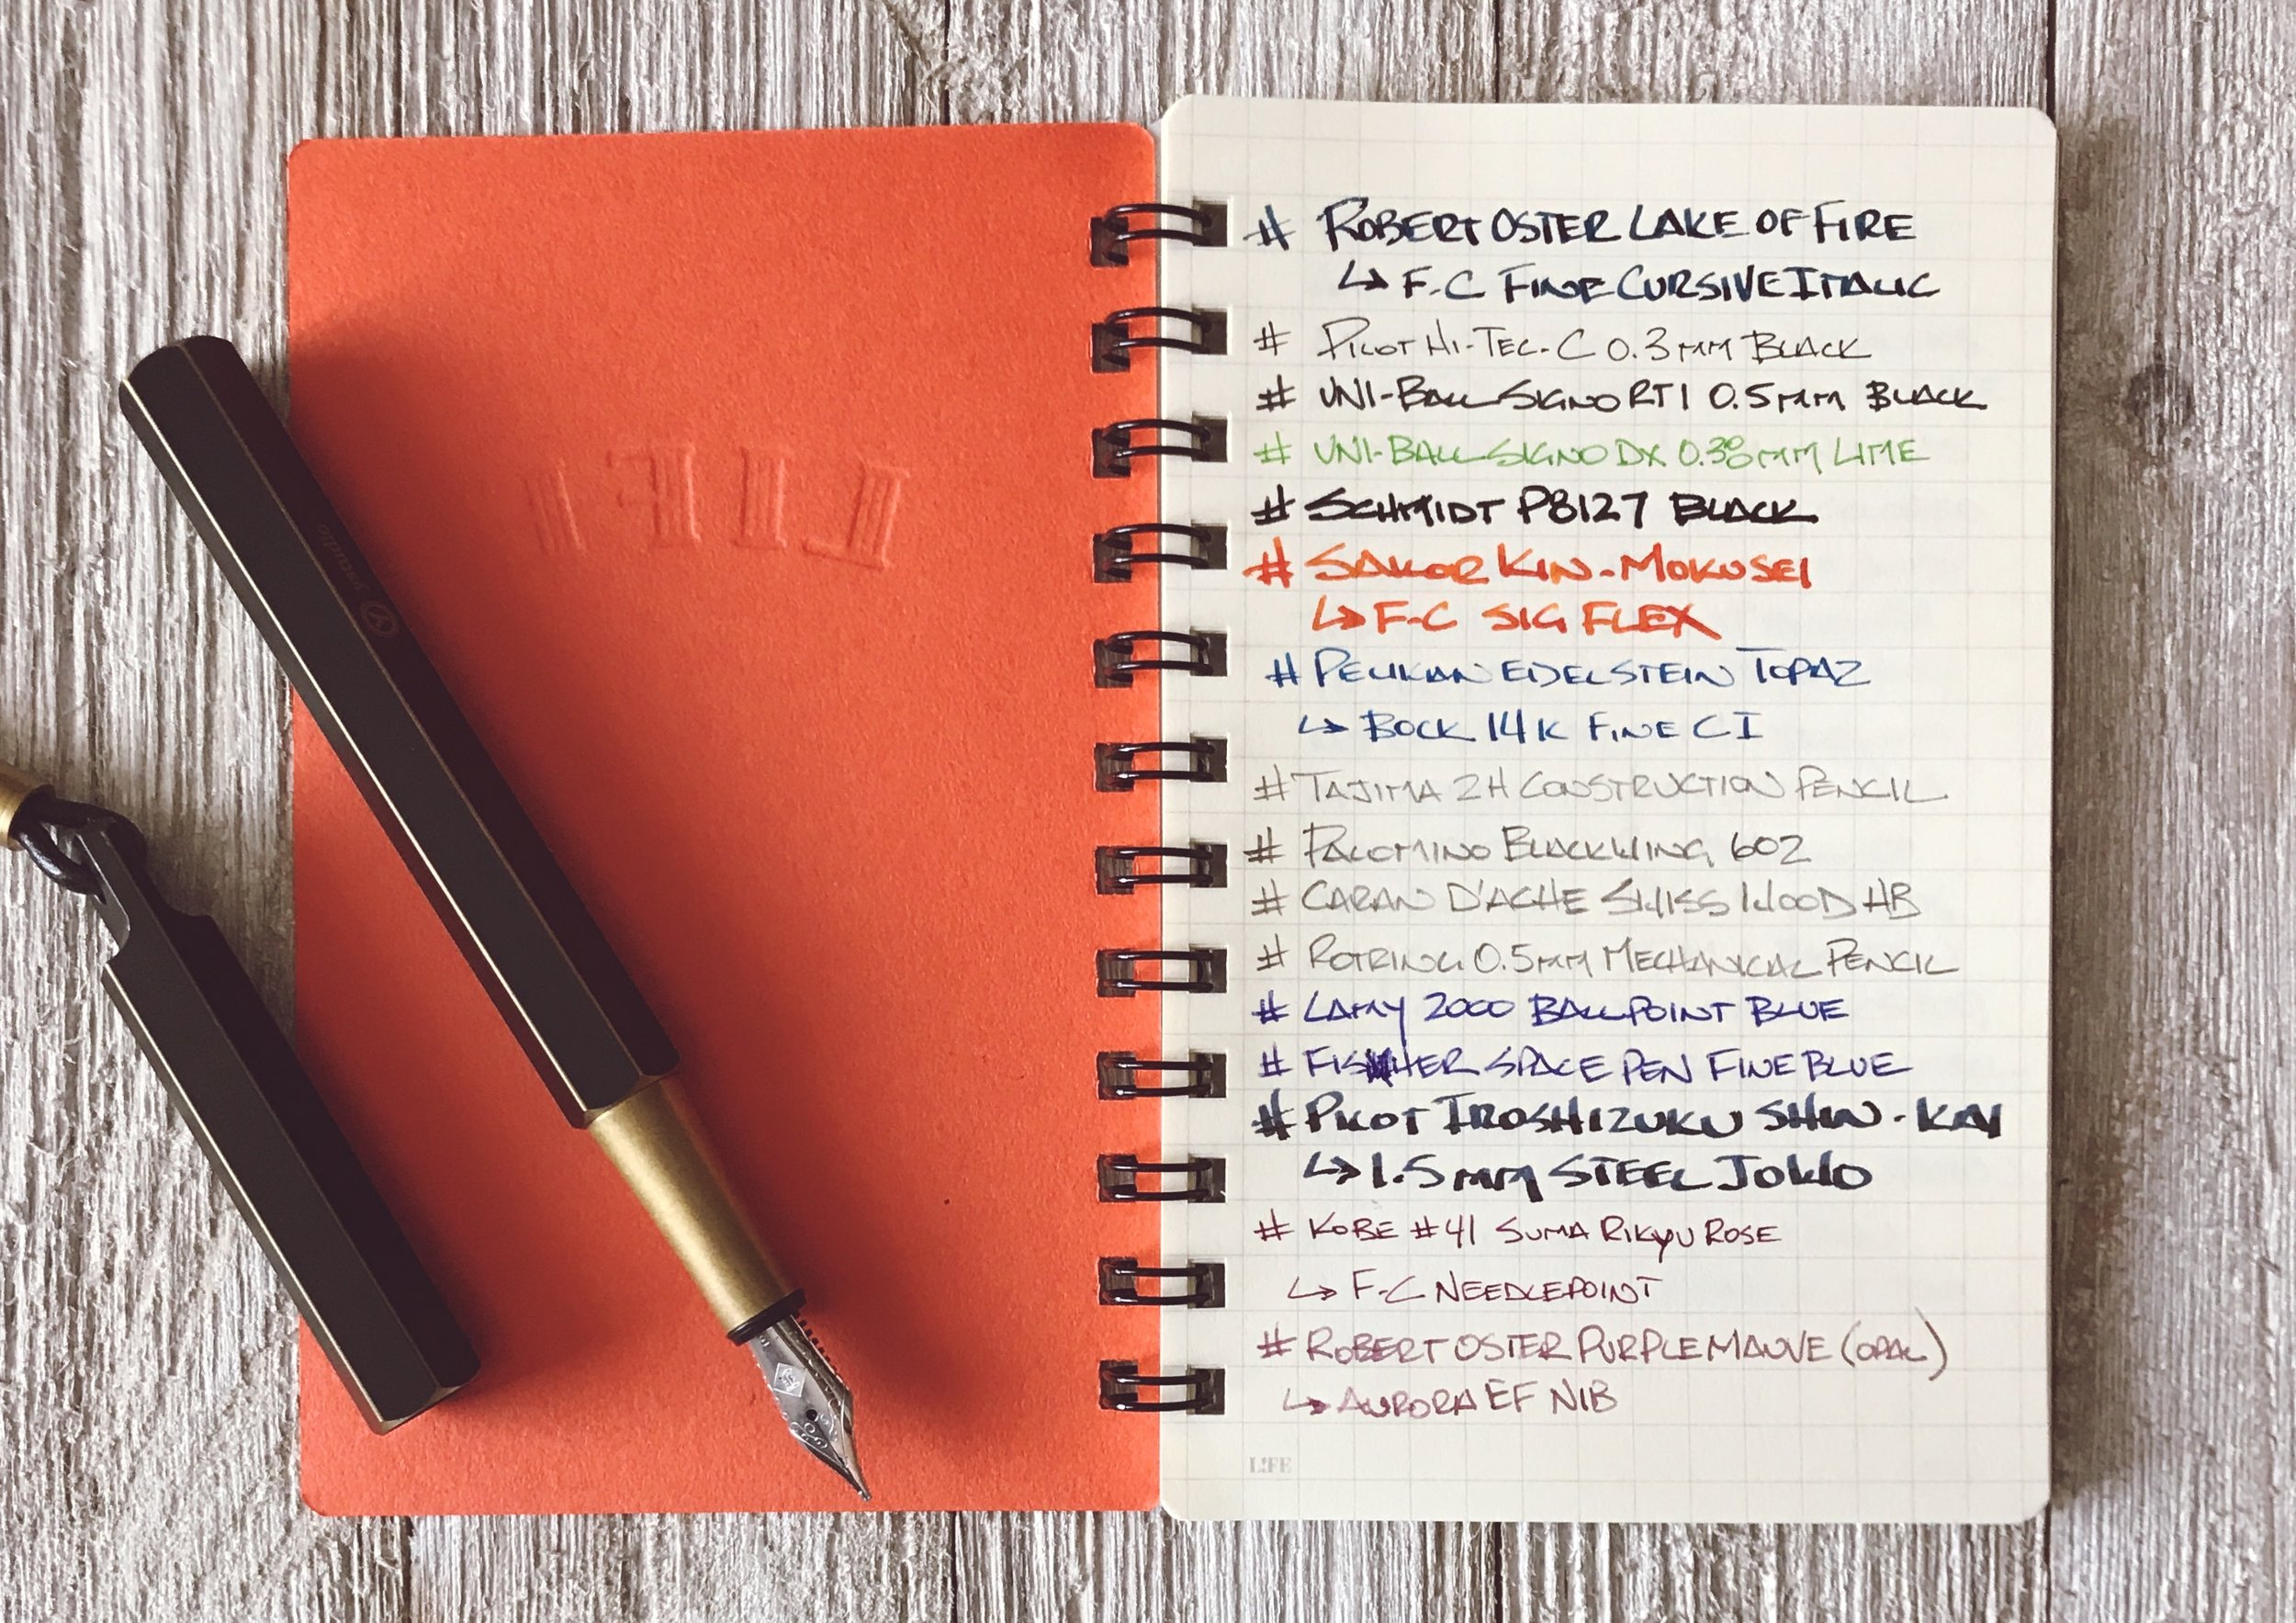 # ROBERT OSTER LAKE OF FIRE
↳ F-C FINE CURSIVE ITALIC
# PILOT HI-TEC-C 0.3mm BLACK
# UNI-BALL SIGNO RT1 0.5mm BLACK
# UNI-BALL SIGNO DX 0.38mm LIME
# SCHMIDT P8127 BLACK
# SAILOR KIN-MOKUSEI
↳ F-C SIG FLEX
# PELIKAN EDELSTEIN TOPAZ
↳ BOCK 14K FINE CI
# TAJIMA 2H CONSTRUCTION PENCIL
# PALOMINO BLACKWING 602
# CARAN D'ACHE SWISS WOOD HB
# ROTRING 0.5mm MECHANICAL PENCIL
# LAMY 2000 BALLPOINT BLUE
# FISHER SPACE PEN FINE BLUE
# PILOT IROSHIZUKU SHIN-KAI
↳ 1.5mm STEEL JOWO
# KOBE #41 SUMA RIKYU ROSE
↳ F-C NEEDLEPOINT
# ROBERT OSTER PURPLE MAUVE (OPAL)
↳ AURORA EF NIB
L!FE
L!FE
studio